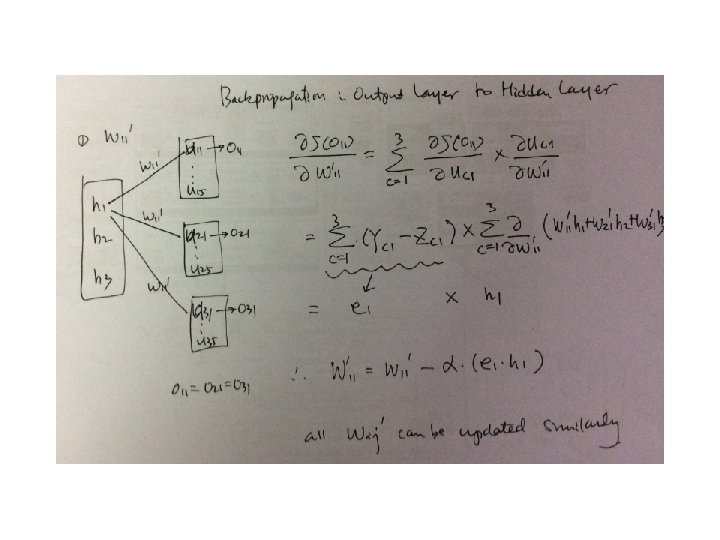 Backpropagation : Output Layer to Hidden Layer
① W₁₁′
h₁
h₂
h₃
W₁₁′
W₁₁′
W₁₁′
u₁₁ → O₁₁
⋮
u₁₅
u₂₁ → O₂₁
⋮
u₂₅
u₃₁ → O₃₁
⋮
u₃₅
O₁₁ = O₂₁ = O₃₁
∂J(O₁₁)/∂W′₁₁ = Σ_{c=1}^{3} ∂J(O₁₁)/∂u_{c1} × ∂u_{c1}/∂W′₁₁
= Σ_{c=1}^{3} (Y_{c1} − Z_{c1}) × Σ_{c=1}^{3} ∂/∂W′₁₁ (W′₁₁h₁+W′₂₁h₂+W′₃₁h₃)
= e₁ × h₁
∴ W′₁₁ = W₁₁′ − α·(e₁·h₁)
all Wxj′ can be updated similarly